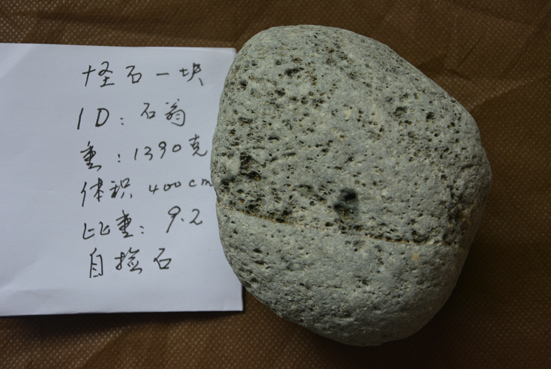 怪石一块
ID：石翁
重：1390克
体积 400cm
比重：9.2
自捡石